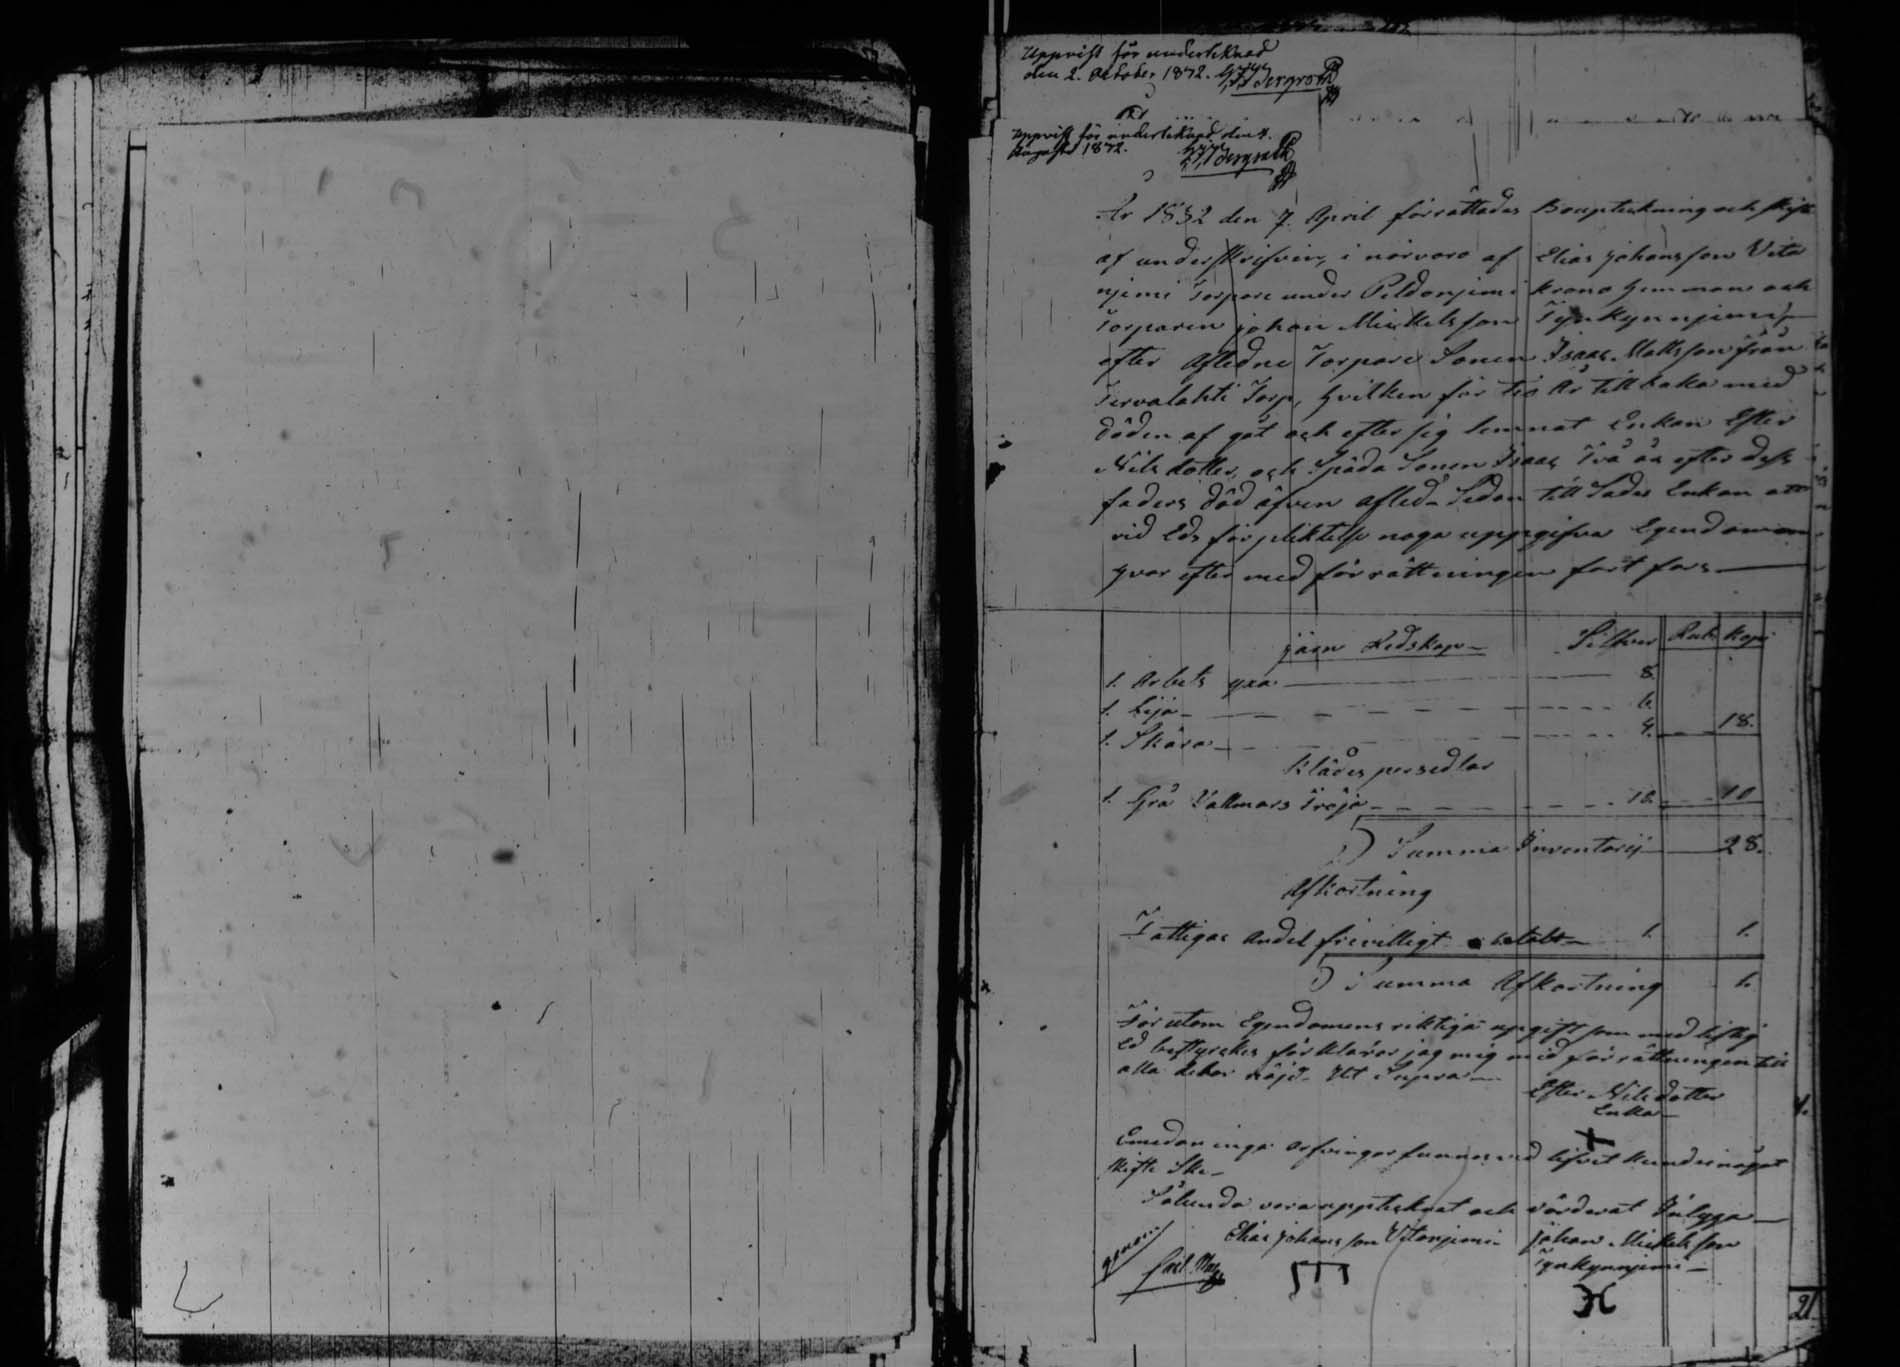 Uppvist för undertecknad
den 2. October 1872. Bergroth
Uppvist för undertecknad den 4.
Augusti 1872. Bergroth
År 1832 den 7. April förrättades Bouptekning och skifte
af underskrifvin, i närvaro af Elias Johansson Vita
njemi Torpare under Peldonjemi krono Hemmans och
Torparen johan Mickelsson Tynkynnjemi,
efter Afledne Torpare Sonen Isaac Mattsson från
Tervalahti Torp, hvilken för tio År tillbaka med
döden af gåt och efter sig lemnat Enkan Ester
Nilsdotter, och Späda Sonen Isaac Två år efter dess
faders död äfven afled. Sedan till Sades Enkan att
vid Eds förpliktelse noga uppgifva Egendomen
hvar efter med förrättningen fort fors
järn Redskap Silfver Rub. kopi
1. Arbets yxa 8.
1. Lija 6.
1. Skära 4. 18.
Klädes persedlar
1. Grå Vallmars Tröja 10. 10
Summa Inventarij 28.
Afkortning
Fattigas Andel frivilligt betalt 1. 1.
Summa Afkortning 1.
Förutom Egendomens riktiga upgift som med liflig
Ed bestyrckes förklarar jag mig med förrättningen till
alla delar nöjd. Ut Supra
Ester Nilsdotter
Enka
Emedan inga arfvingar funnos vid lifvet kunde något
skifte Ske
Sålunda vara upptecknat och värderat Intyga
Elias Johansson Vitanjemi Johan Mickelsson
Tynkynnjemi
Carl
21